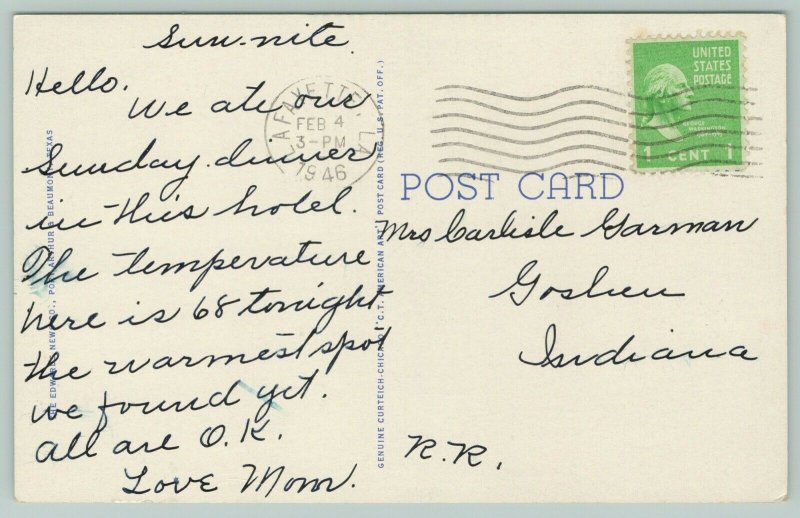 Sun-nite.
Hello.
We ate our
Sunday dinner
in this hotel.
The temperature
here is 68 tonight
the warmest spot
we found yet.
All are O.K.
Love Mom.
LAFAYETTE, LA.
FEB 4
3-PM
1946
UNITED
STATES
POSTAGE
GEORGE
WASHINGTON
1 CENT 1
POST CARD
Mrs Carlisle Garman
Goshen
Indiana
R.R.
GENUINE CURTEICH-CHICAGO "C.T. AMERICAN ART" POST CARD (REG. U.S. PAT. OFF.)
NEWS CO., PORT ARTHUR & BEAUMONT, TEXAS